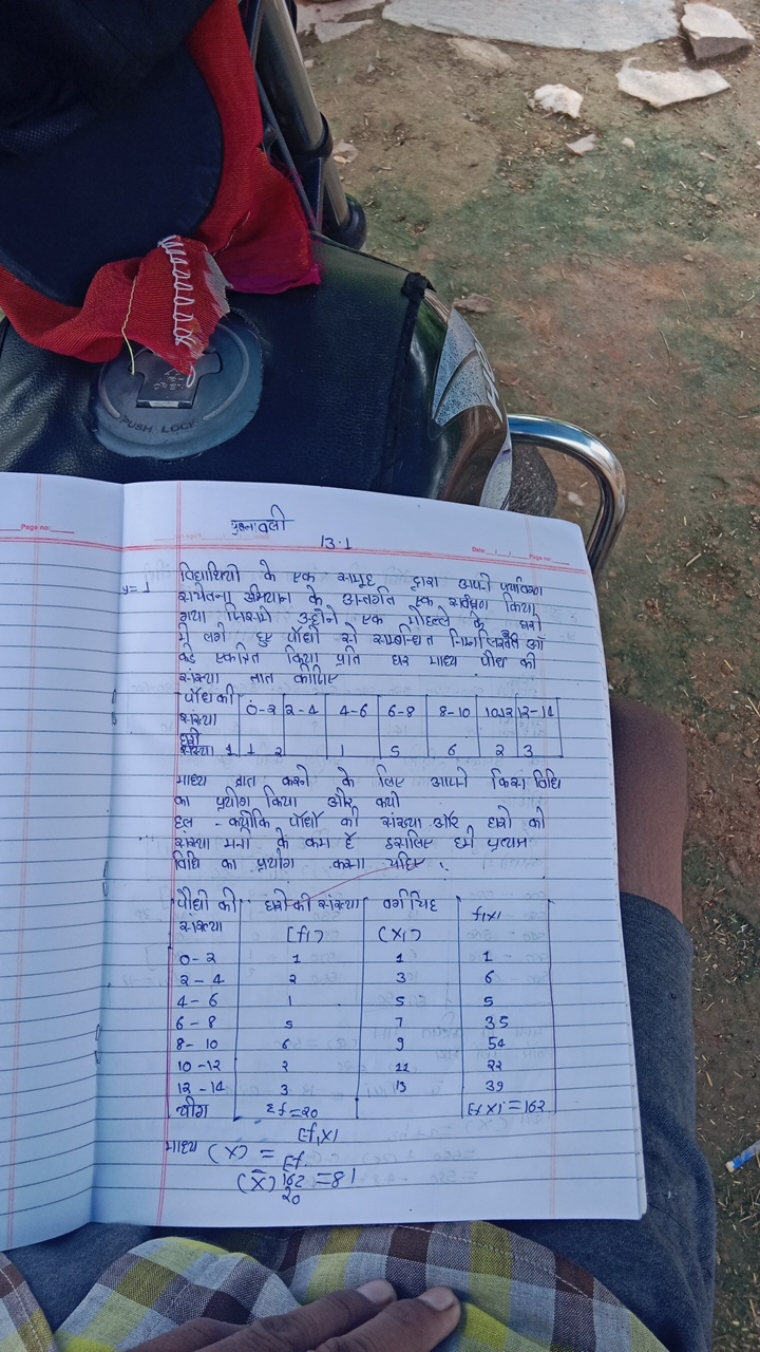 PUSH LOCK
Page no:
प्रश्नावली
13.1
Date: Page no:
विद्यार्थियो के एक समूह द्वारा अपने पर्यावरण
सचेतना अभियान के अन्तर्गत एक सर्वेक्षण किया
गया जिसमे उन्होने एक मोहल्ले के घरो
मे लगे हुए पौधो से सम्बन्धित निम्नलिखित आँ
कडे एकत्रित किया प्रति घर माध्य पौध की
संख्या ज्ञात कीजिए
पौध की 0-2 2-4 4-6 6-8 8-10 10-12 12-14
संख्या
घरो
संख्या 1 2 1 5 6 2 3
माध्य ज्ञात करने के लिए आपने किस विधि
का प्रयोग किया और क्यो
हल - क्योकि पौधो की संख्या और घरो की
संख्या के कम है इसलिए हमे प्रत्यक्ष
विधि का प्रयोग करना चाहिए
पौधो की घरो की संख्या वर्ग चिह f1x1
संख्या (f1) (x1)
0-2 1 1 1
2-4 2 3 6
4-6 1 5 5
6-8 5 7 35
8-10 6 9 54
10-12 2 11 22
12-14 3 13 39
योग Σf=20 Σfxi=162
Σf1x1
माध्य (x) = Σf.
(x̄) 162 =81
20